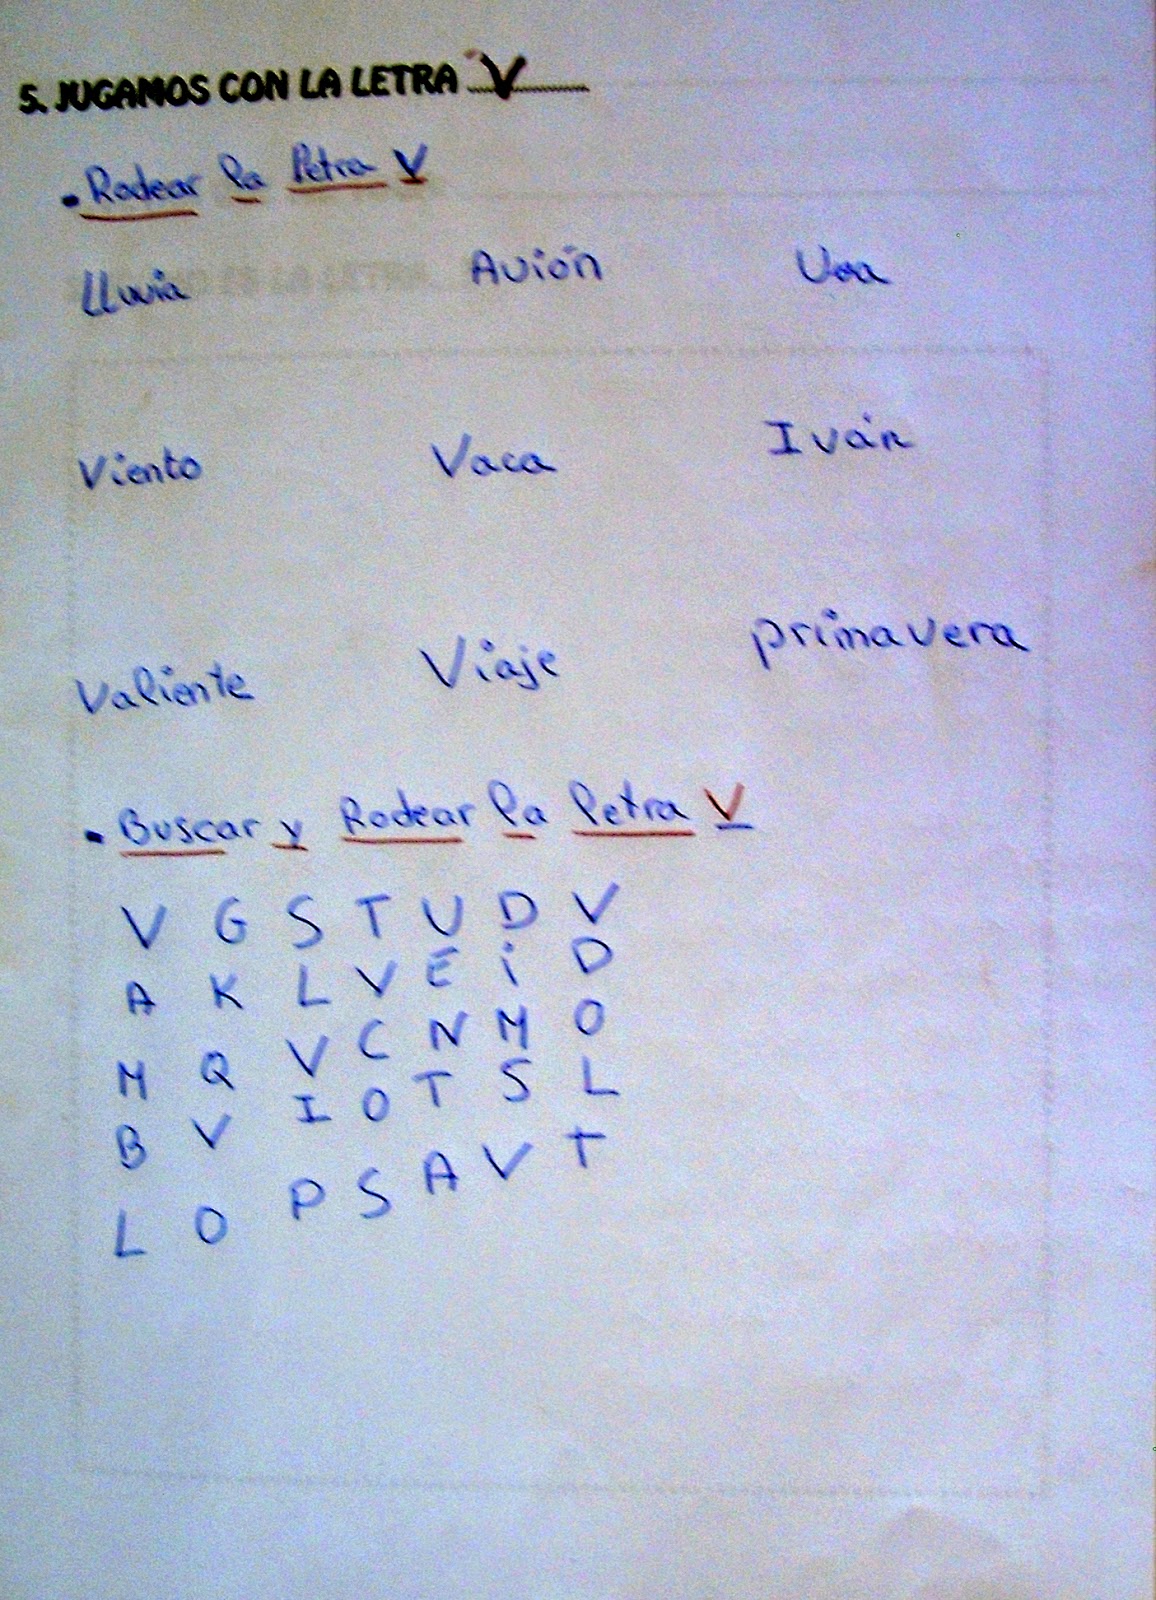 5. JUGAMOS CON LA LETRA V
• Rodear la letra V
Lluvia Avión Uva
Viento Vaca Iván
Valiente Viaje primavera
• Buscar y Rodear la letra V
V G S T U D V
A K L V E i D
M Q V C N M O
B V I O T S L
L O P S A V T